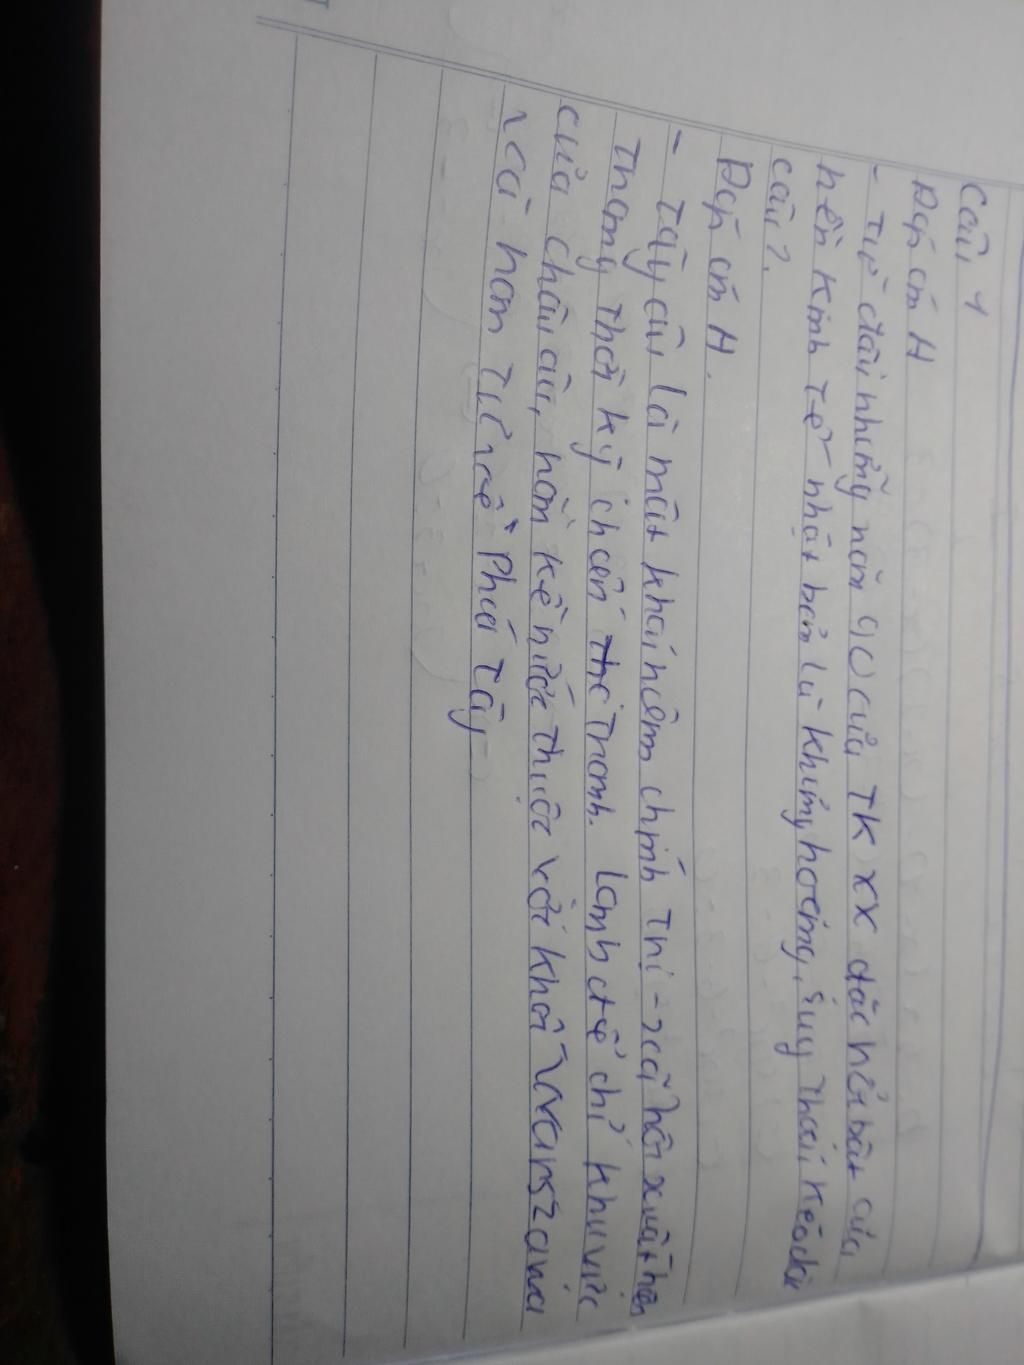 Câu 1
Đáp án A
- Từ đầu những năm 90 của TK XX đặc nổi bật của
nền kinh tế nhật bản là khủng hoảng, suy thoái kéo dài
câu 2.
Đáp án A.
- Tây âu là một khái niệm chính trị - xã hội xuất hiện
Trong thời kỳ chiến tranh. Lạnh để chỉ khu vực
của châu âu, nằm kề nước thuộc với khối varszava
và nam tư về Phía Tây